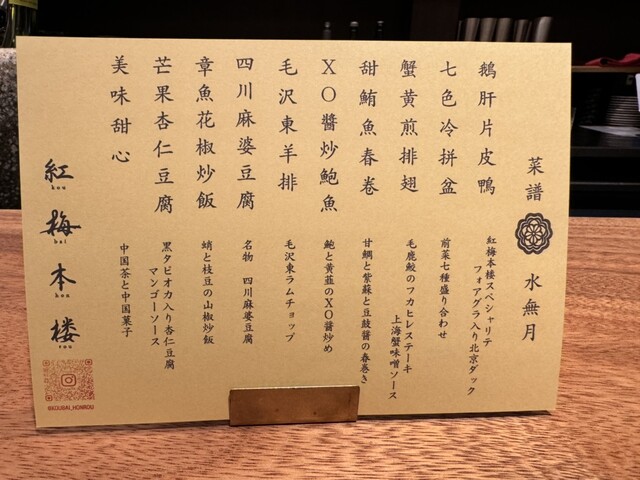 菜譜 水無月
鵝肝片皮鴨
紅梅本楼スペシャリテ
フォアグラ入り北京ダック
七色冷拼盆
前菜七種盛り合わせ
蟹黄煎排翅
毛鹿鮫のフカヒレステーキ
上海蟹味噌ソース
甜鮪魚春卷
甘鯛と紫蘇と豆豉醬の春巻き
XO醬炒鮑魚
鮑と黄韮のXO醬炒め
毛沢東羊排
毛沢東ラムチョップ
四川麻婆豆腐
名物 四川麻婆豆腐
章魚花椒炒飯
蛸と枝豆の山椒炒飯
芒果杏仁豆腐
黒タピオカ入り杏仁豆腐
マンゴーソース
美味甜心
中国茶と中国菓子
紅梅本楼
kou
bai
hon
rou
@KOUBAI_HONROU